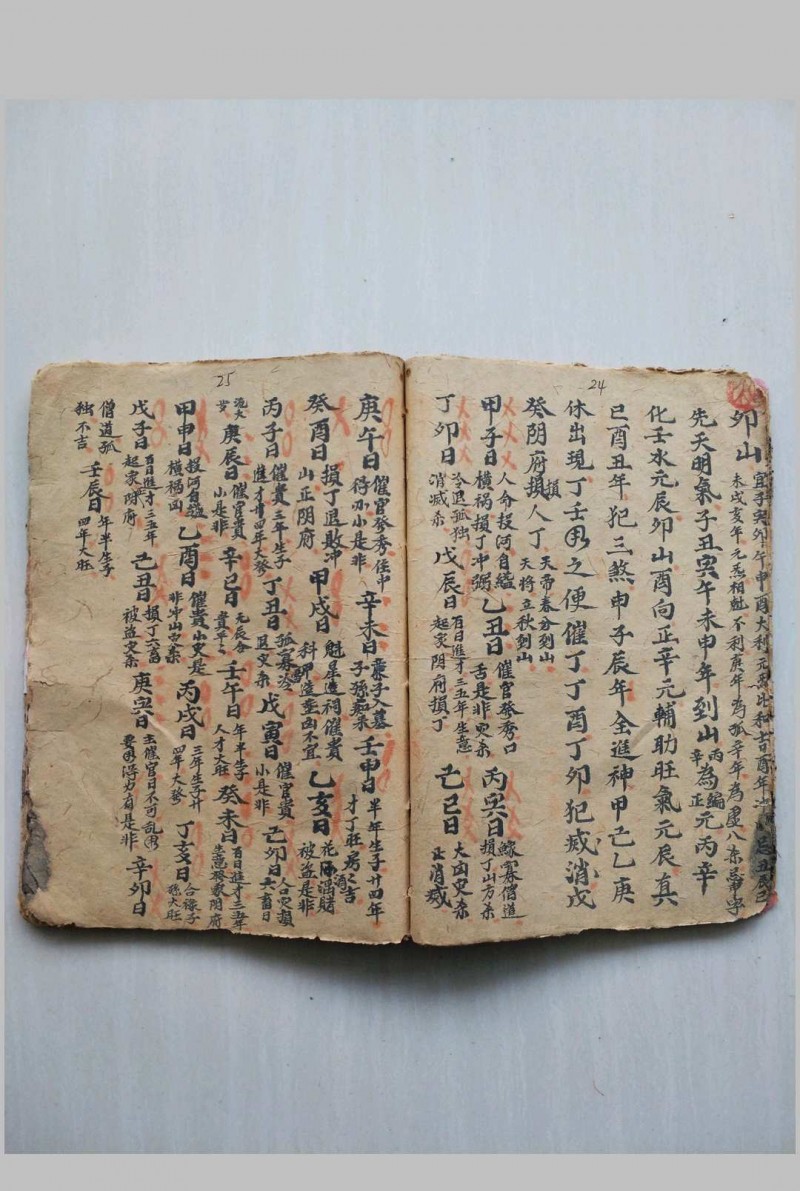 24
卯山
宜子寅卯午申酉大利元炁比和吉酉年
忌丑辰巳未戌亥年元炁相尅不利庚年為孤辛年為虛八杀忌
先天明氣子丑寅午未申年到山丙辛為正編元丙辛
化壬水元辰卯山酉向正辛元輔助旺氣元辰真
巳酉丑年犯三煞申子辰年全進神甲己乙庚
休出現丁壬用之便催丁丁酉丁卯犯滅消戊
癸阴府損人丁 天帝春分到山 天將立秋到山
甲子日 人命投河自縊橫禍損丁冲 乙丑日 催官發秀口舌是非灾杀 丙寅日 鰥寡僧道損丁山方杀
丁卯日 冷退孤独消滅杀 戊辰日 百日進才三五年生意起家阴府損丁 己巳日 大凶灾杀正消滅
25
庚午日 催官發秀在中得亦小是非 辛未日 子孫 壬申日 半年生子廿四年才丁旺房房吉
癸酉日 損丁退敗冲山正阴府 甲戌日 魁星造祠催貴科甲造葬凶不宜 乙亥日 花酒賭被盜是非
丙子日 催貴三年生子進才廿四年大發 丁丑日 孤寡冷退灾杀 戊寅日 催官貴小是非 己卯日 六畜日
庚辰日 催官貴小是非 辛巳日 壬午日 年半生子人才大旺 癸未日 百日進才三五年生意發家阴府
甲申日 投河自縊橫禍凶 乙酉日 催貴小灾是非冲山正杀 丙戌日 三年生子廿四年大發 丁亥日 合祿子孫大旺
戊子日 百日進才三五年起家阴府 己丑日 損丁六畜被盜灾杀 庚寅日 主催官日不可乱用要用得力有是非 辛卯日
僧道孤独不吉 壬辰日 年半生子四年大旺